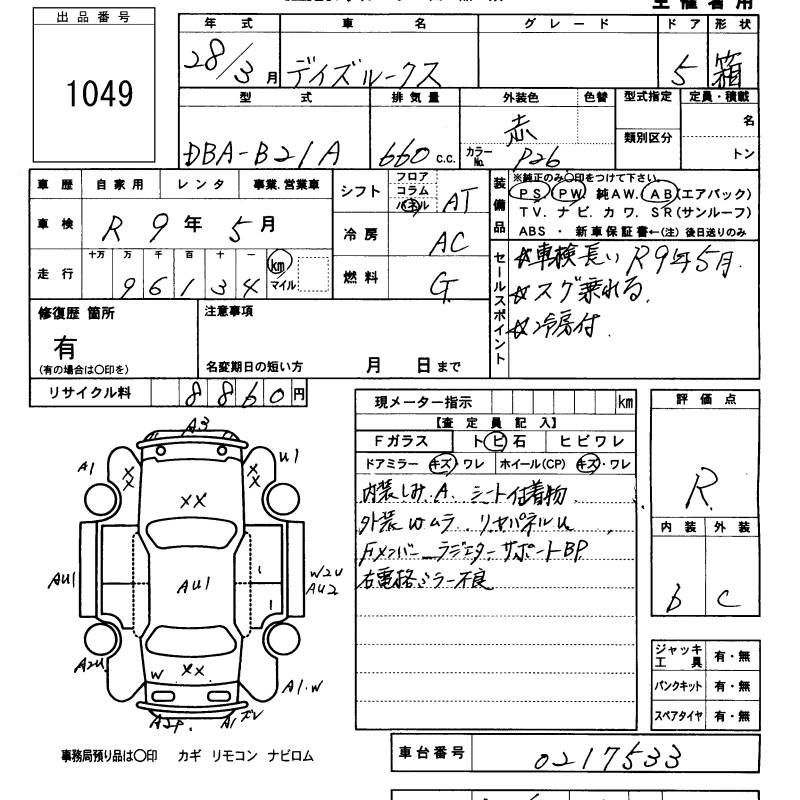 出品番号
1049
年式 車名 グレード ドア 形状
28/3月 デイズルークス 5 箱
型式 排気量 外装色 色替 型式指定 定員・積載
DBA-B21A 660 c.c. 赤 カラーNo. P26 類別区分 名 トン
車歴 自家用 レンタ 事業.営業車
車検 R 9年 5月
走行 十万 万 千 百 十 一 km マイル
9 6 1 3 4
シフト フロア コラム パネル AT
冷房 AC
燃料 G
装備品
※純正のみ〇印をつけて下さい。
PS PW. 純AW. AB(エアバック)
TV. ナビ. カワ. SR(サンルーフ)
ABS ・ 新車保証書←(注) 後日送りのみ
セールスポイント
☆車検長い R9年5月.
☆スグ乗れる.
☆冷房付.
修復歴 箇所
有
(有の場合は〇印を)
注意事項
名変期日の短い方 月 日まで
リサイクル料 8860円
現メーター指示 km
【査定員記入】
Fガラス トビ石 ヒビワレ
ドアミラー キズ・ワレ ホイール(CP) キズ・ワレ
内装しみ.A. シート付着物
外装Wムラ. リヤパネルU
Fメンバー ラジエターサポートBP
右電格ミラー不良
評価点
R
内装 外装
b C
ジャッキ工具 有・無
パンクキット 有・無
スペアタイヤ 有・無
A3
A1 U1
XX XX
XX
AU1 AU1 W2U
AU2
A2U XX
W A1.W
A2P. A1ズレ
事務局預り品は〇印 カギ リモコン ナビロム
車台番号 0217533